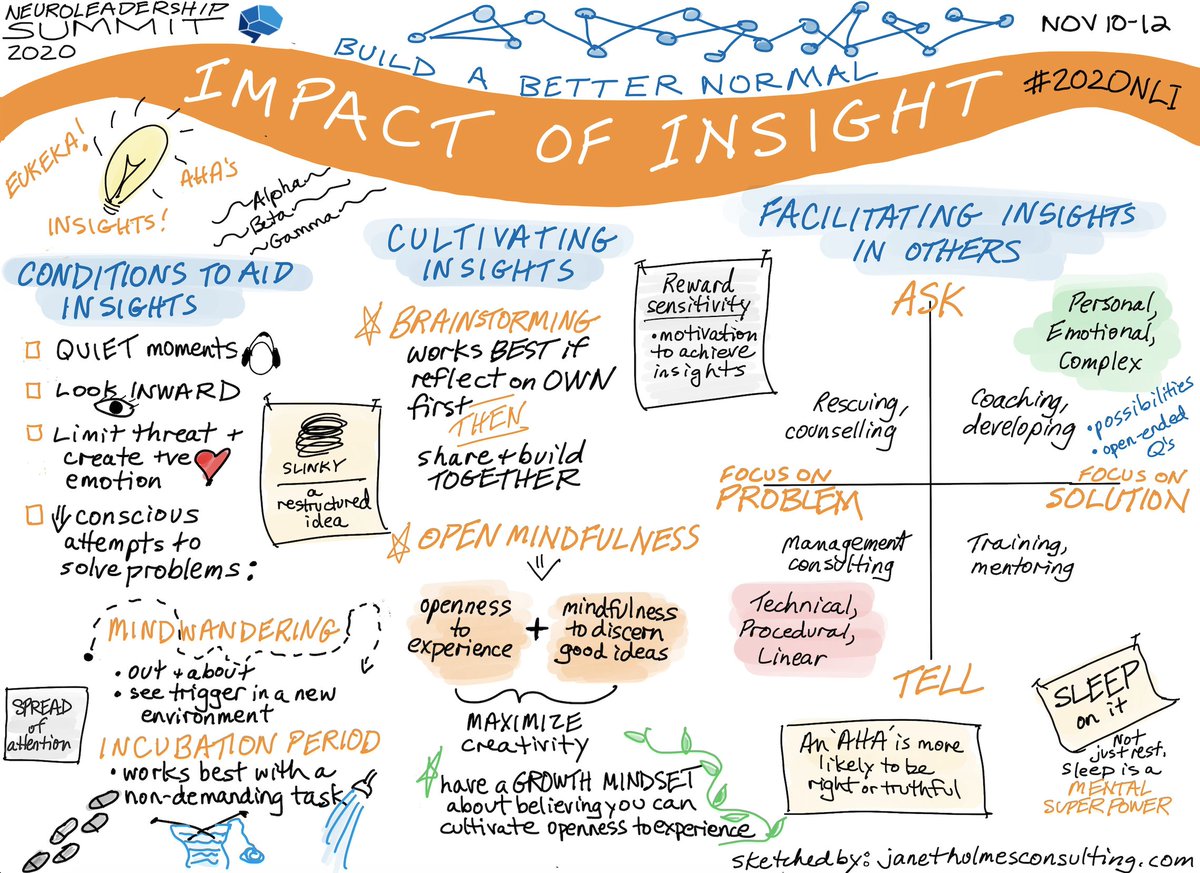 NEUROLEADERSHIP
SUMMIT
2020
BUILD A BETTER NORMAL
NOV 10-12
IMPACT OF INSIGHT
#2020NLI
EUKEKA!
AHA'S
INSIGHTS!
Alpha
Beta
Gamma
CONDITIONS TO AID
INSIGHTS
QUIET moments
LOOK INWARD
Limit threat +
create +ve
emotion
conscious
attempts to
solve problems:
SLINKY
a
restructured
idea
MINDWANDERING
• out + about
• see trigger in a new
environment
SPREAD
of
attention
INCUBATION PERIOD
• works best with a
non-demanding task
CULTIVATING
INSIGHTS
BRAINSTORMING
works BEST if
reflect on OWN
first
THEN
share + build
TOGETHER
OPEN MINDFULNESS
openness
to
experience
+
mindfulness
to discern
good ideas
MAXIMIZE
creativity
have a GROWTH MINDSET
about believing you can
cultivate openness to experience
Reward
sensitivity
• motivation
to achieve
insights
FACILITATING INSIGHTS
IN OTHERS
ASK
Personal,
Emotional,
Complex
Rescuing,
counselling
Coaching,
developing
• possibilities
• open-ended
Q's
FOCUS ON
PROBLEM
FOCUS ON
SOLUTION
Management
consulting
Training,
mentoring
Technical,
Procedural,
Linear
TELL
An 'AHA' is more
likely to be
right or truthful
SLEEP
on it
Not
just rest.
Sleep is a
MENTAL
SUPER POWER
sketched by: janetholmesconsulting.com